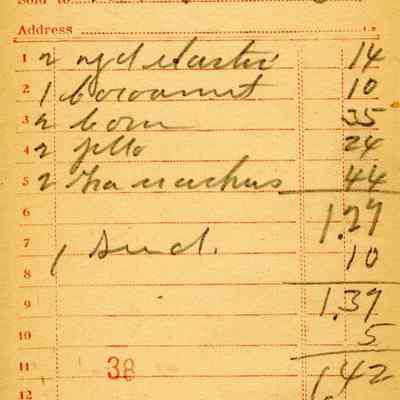 Sold to
Address
1 2 yd elastic 14
2 1 cocoanut 10
3 2 corn 35
4 2 jello 24
5 2 44
6 1.27
7 1 10
8
9 1.37
10 5
11 38 1.42
12